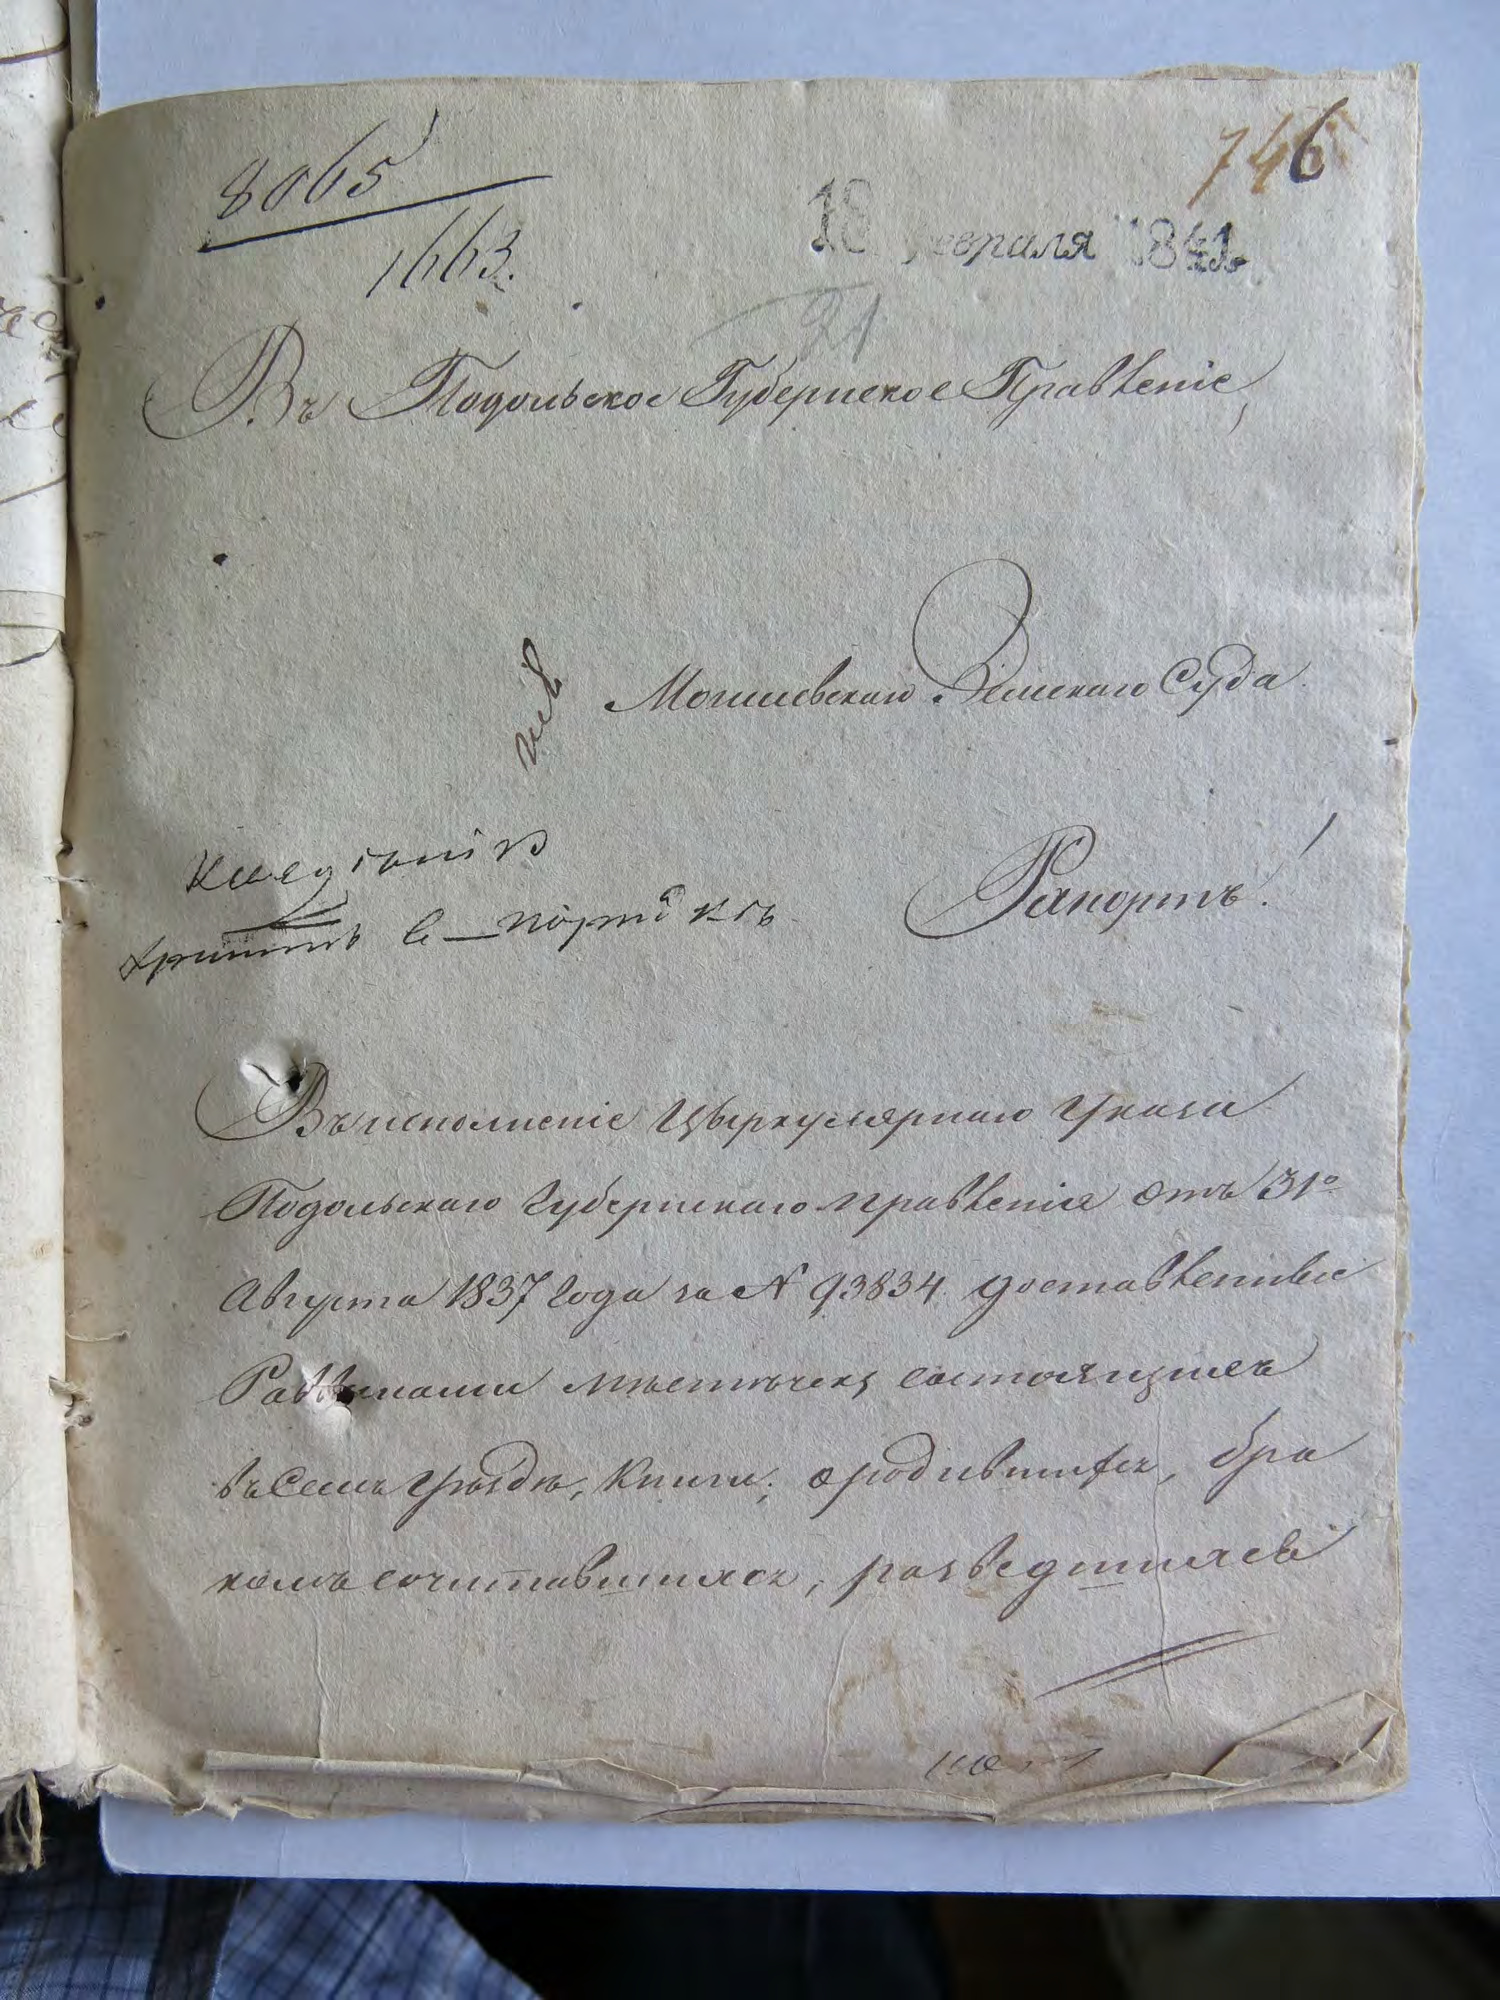 746
8065
1663.
18 Февраля 1841.
21
Въ Подольское Губернское Правленіе,
Могилевскаго Земскаго Суда
Рапортъ!
принять въ порядкъ
Въ исполненіе Цыркулярнаго Указа
Подольскаго Губернскаго Правленія отъ 31º
Августа 1837 года за N 93834 доставленные
Раввинами мѣстѣчекъ состоящихъ
въ семъ Уѣздѣ, книги; о родившихся, бра
комъ сочитавшихся, разведшихся